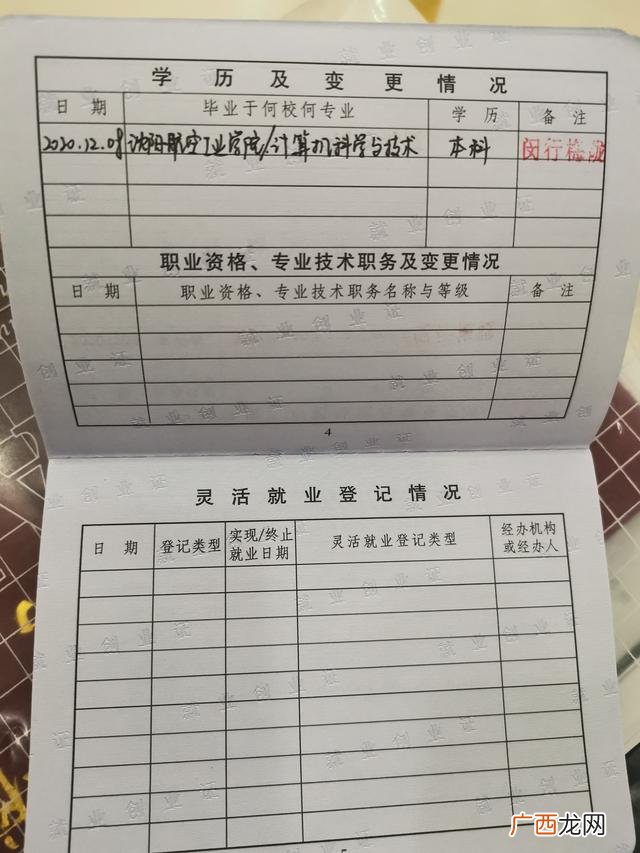 学历及变更情况
日期 毕业于何校何专业 学历 备注
2020.12.08 沈阳航空工业学院/计算机科学与技术 本科 闵行梅陇
职业资格、专业技术职务及变更情况
日期 职业资格、专业技术职务名称与等级 备注
4
灵活就业登记情况
日期 登记类型 实现/终止 灵活就业登记类型 经办机构
就业日期 或经办人
就业创业证
广西龙网